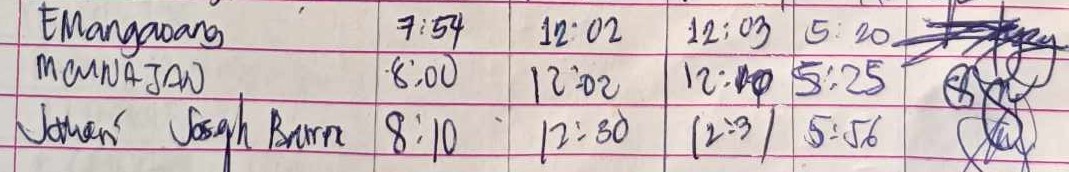 EMangaoang 7:54 12:02 12:03 5:20
MCMNAJAN 8:00 12:02 12:10 5:25
Joseph 8:10 12:30 12:31 5:56